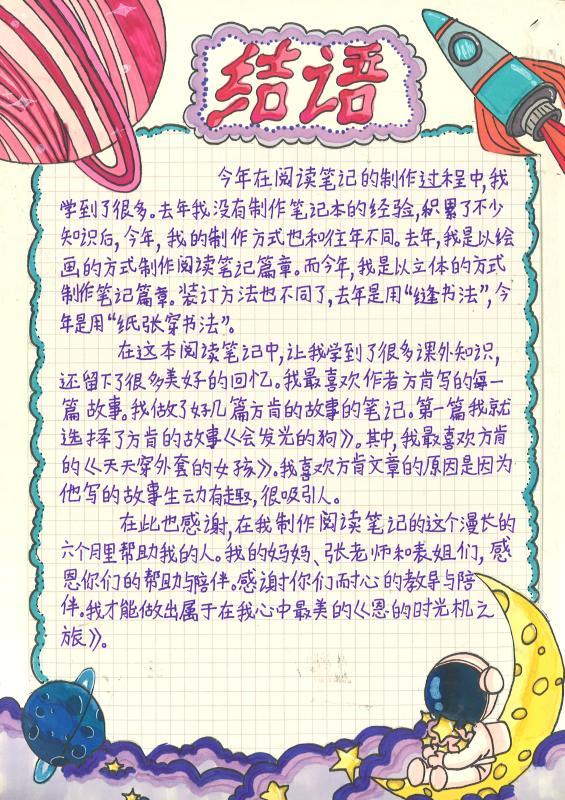 结语
今年在阅读笔记的制作过程中,我
学到了很多。去年我没有制作笔记本的经验,积累了不少
知识后,今年,我的制作方式也和往年不同。去年,我是以绘
画的方式制作阅读笔记篇章。而今年,我是以立体的方式
制作笔记篇章。装订方法也不同了,去年是用“缝书法”,今
年是用“纸张穿书法”。
在这本阅读笔记中,让我学到了很多课外知识,
还留下了很多美好的回忆。我最喜欢作者方肯写的每一
篇故事。我做了好几篇方肯的故事的笔记。第一篇我就
选择了方肯的故事《会发光的狗》。其中,我最喜欢方肯
的《天天穿外套的女孩》。我喜欢方肯文章的原因是因为
他写的故事生动有趣,很吸引人。
在此也感谢,在我制作阅读笔记的这个漫长的
六个月里帮助我的人。我的妈妈、张老师和表姐们,感
恩你们的帮助与陪伴。感谢你们耐心的教导与陪
伴。我才能做出属于在我心中最美的《恩的时光机之
旅》。